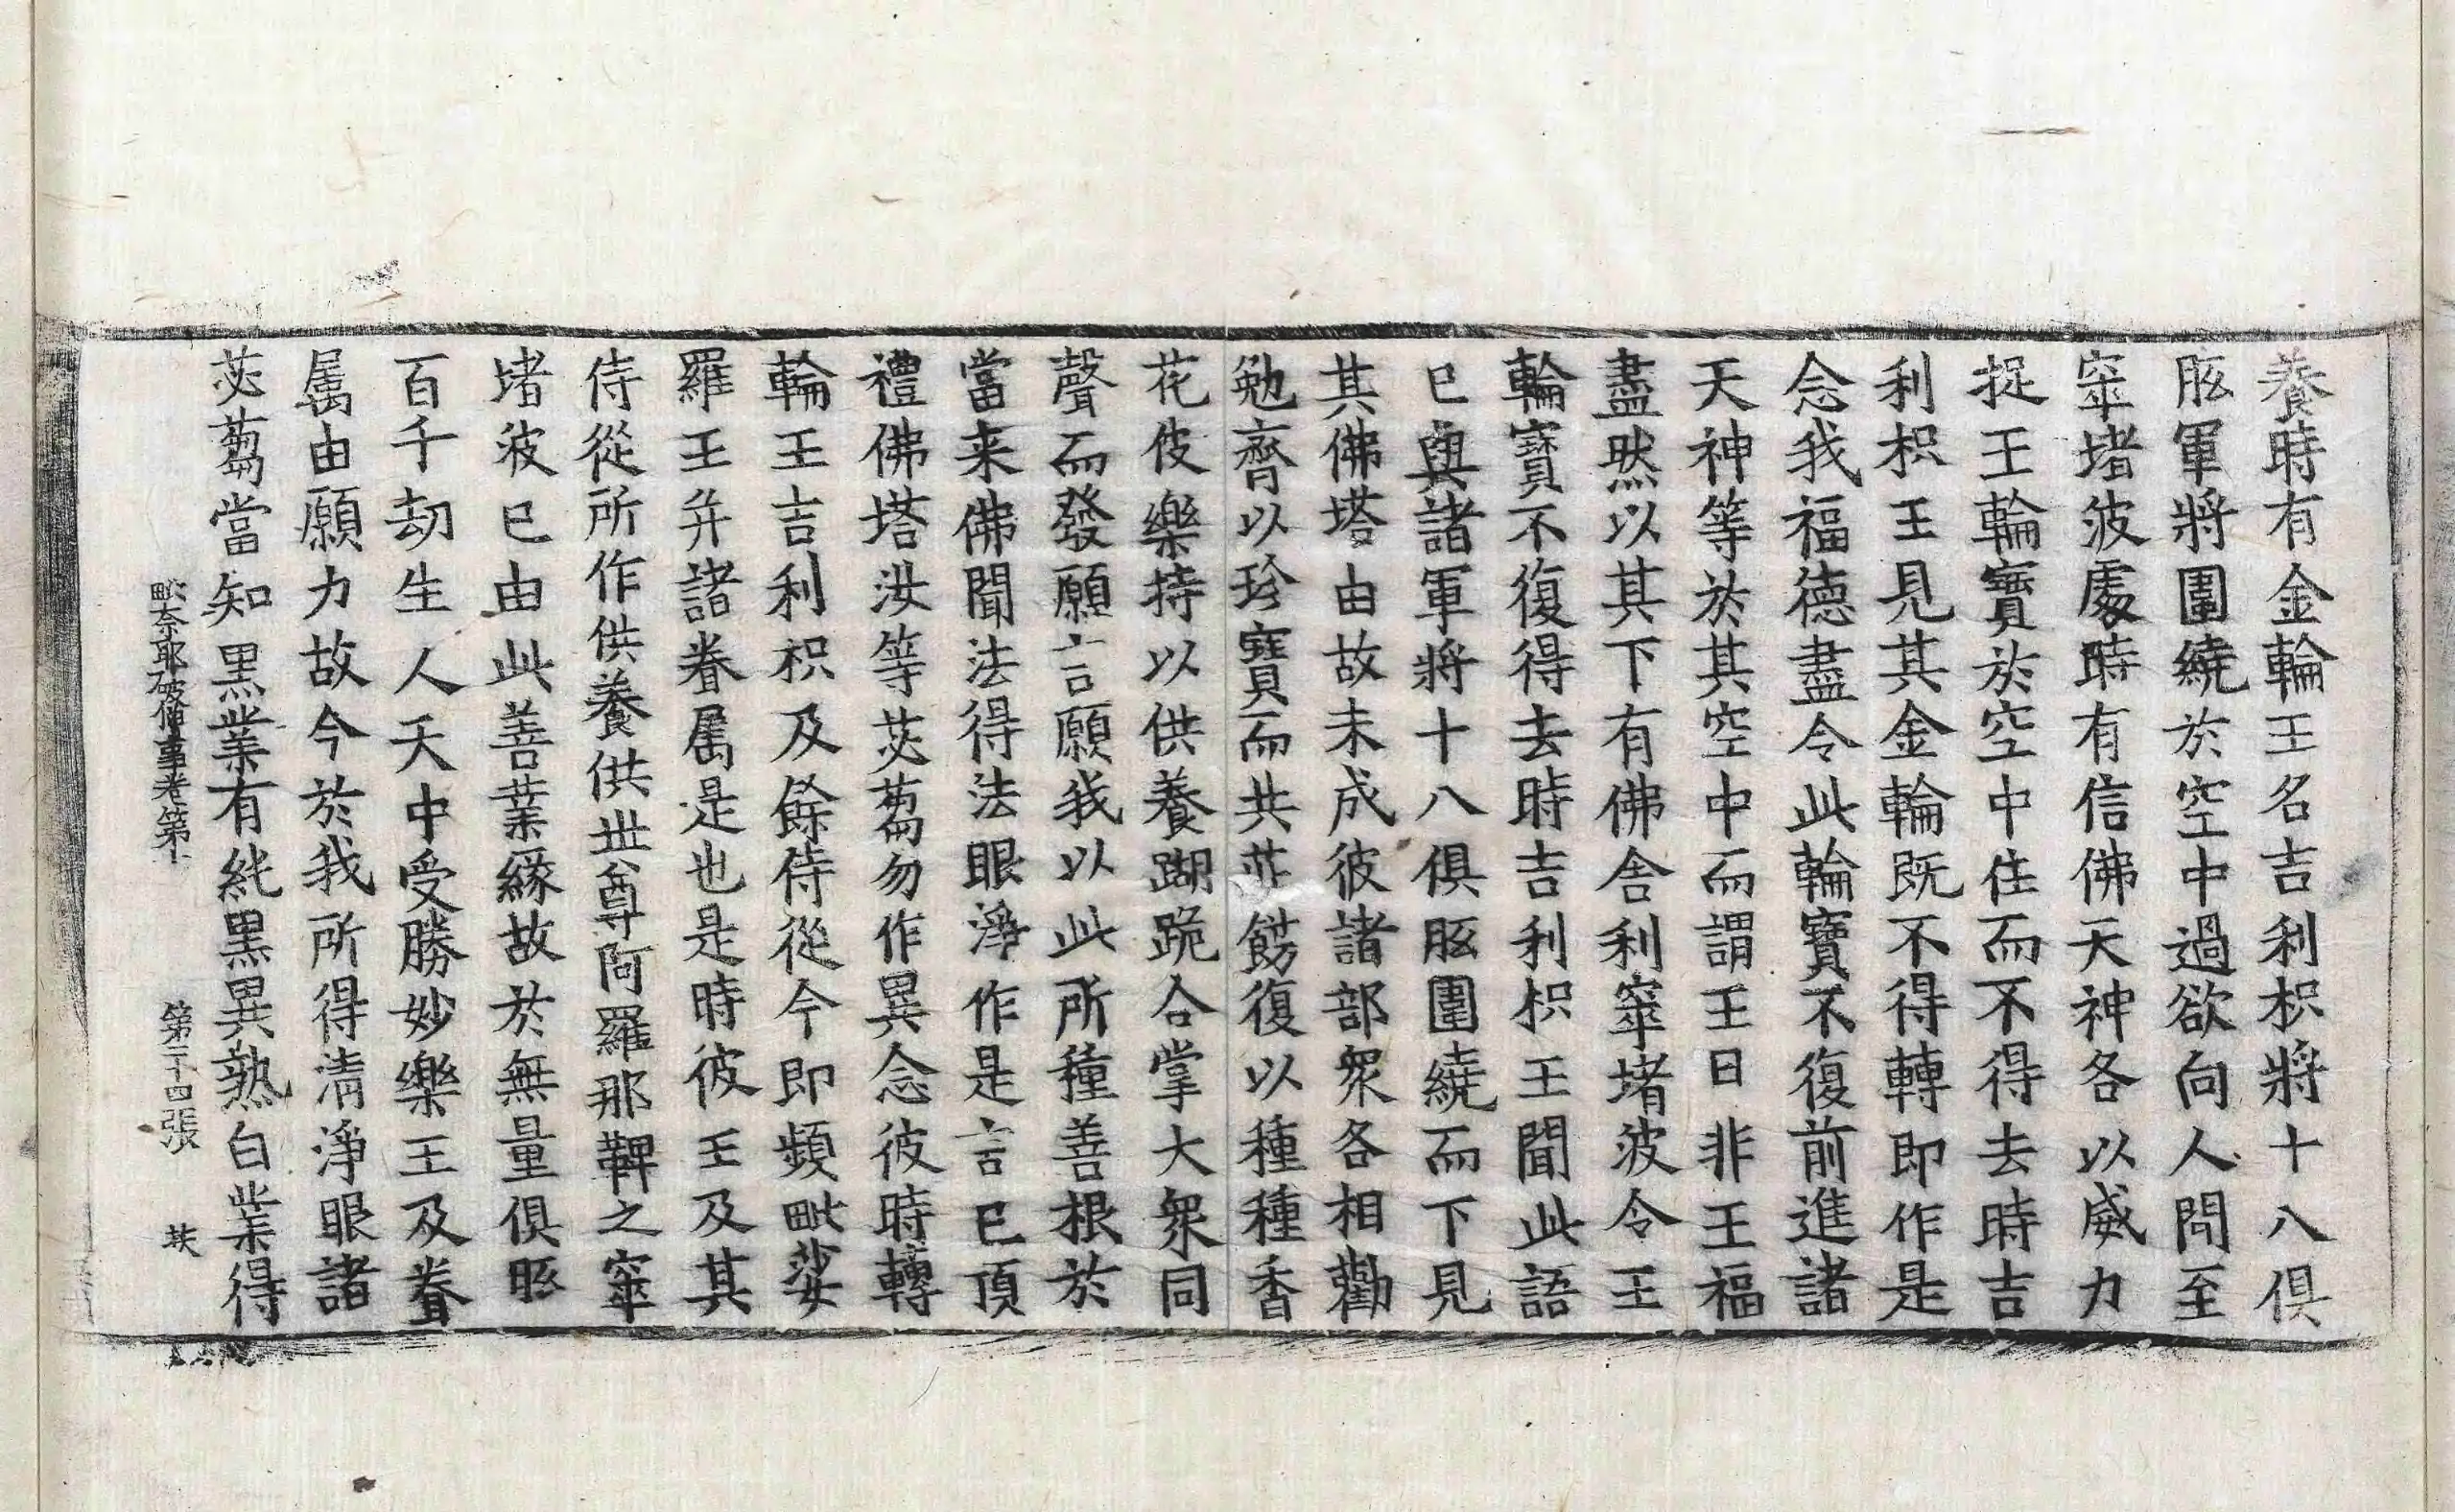 養時有金輪王名吉利枳將十八俱
胝軍將圍繞於空中過欲向人間至
窣堵波處時有信佛天神各以威力
捉王輪寶於空中住而不得去時吉
利枳王見其金輪旣不得轉即作是
念我福德盡令此輪寶不復前進諸
天神等於其空中而謂王曰非王福
盡然以其下有佛舍利窣堵波令王
輪寶不復得去時吉利枳王聞此語
已與諸軍將十八俱胝圍繞而下見
其佛塔由故未成彼諸部衆各相勸
勉齊以珍寶而共莊餝復以種種香
花伎樂持以供養蹋跪合掌大衆同
聲而發願言願我以此所種善根於
當来佛聞法得法眼淨作是言已頂
禮佛塔汝等苾蒭勿作異念彼時轉
輪王吉利枳及餘侍從今即頻毗娑
羅王并諸眷屬是也是時彼王及其
侍從所作供養供世尊阿羅那鞞之窣
堵波已由此善業緣故於無量俱胝
百千劫生人天中受勝妙樂王及眷
屬由願力故今於我所得清淨眼諸
苾蒭當知黑業有純黑異熟白業得
毗奈耶破僧事卷第十 第二十四張 扶